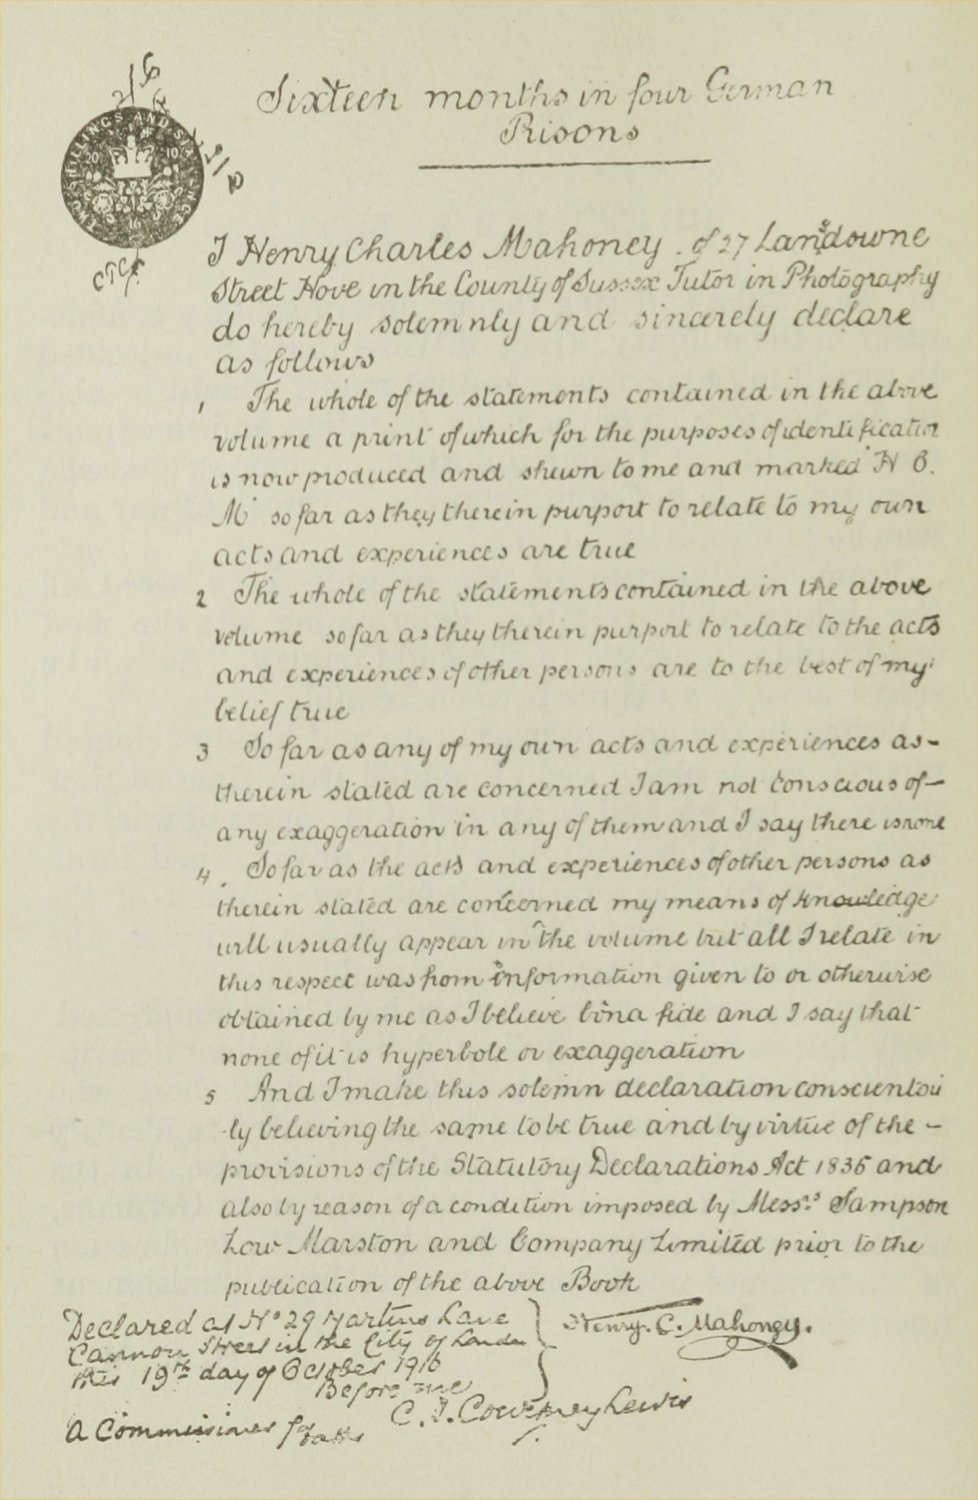 Sixteen months in four German
Prisons
2/6
TWO SHILLINGS AND SIX PENCE
20 10
16
I Henry Charles Mahoney of 27 Lansdowne
Street Hove in the County of Sussex Tutor in Photography
do hereby solemnly and sincerely declare
as follows
1 The whole of the statements contained in the above
volume a print of which for the purposes of identification
is now produced and shewn to me and marked "H C.
M" so far as they therein purport to relate to my own
acts and experiences are true
2 The whole of the statements contained in the above
volume so far as they therein purport to relate to the acts
and experiences of other persons are to the best of my
belief true
3 So far as any of my own acts and experiences as-
therein stated are concerned I am not conscious of-
any exaggeration in any of them and I say there is none
4. So far as the acts and experiences of other persons as
therein stated are concerned my means of knowledge
will usually appear in the volume but all I relate in
this respect was from information given to or otherwise
obtained by me as I believe bona fide and I say that
none of it is hyperbole or exaggeration
5 And I make this solemn declaration conscientious
-ly believing the same to be true and by virtue of the -
provisions of the Statutory Declarations Act 1835 and
also by reason of a condition imposed by Messrs Sampson
Low Marston and Company Limited prior to the
publication of the above Book
Declared at No 29 Martins Lane
Cannon Street in the City of London
this 19th day of October 1916
Before me
Henry. C. Mahoney.
C. T. Courtney Lewis
A Commissioner for oaths